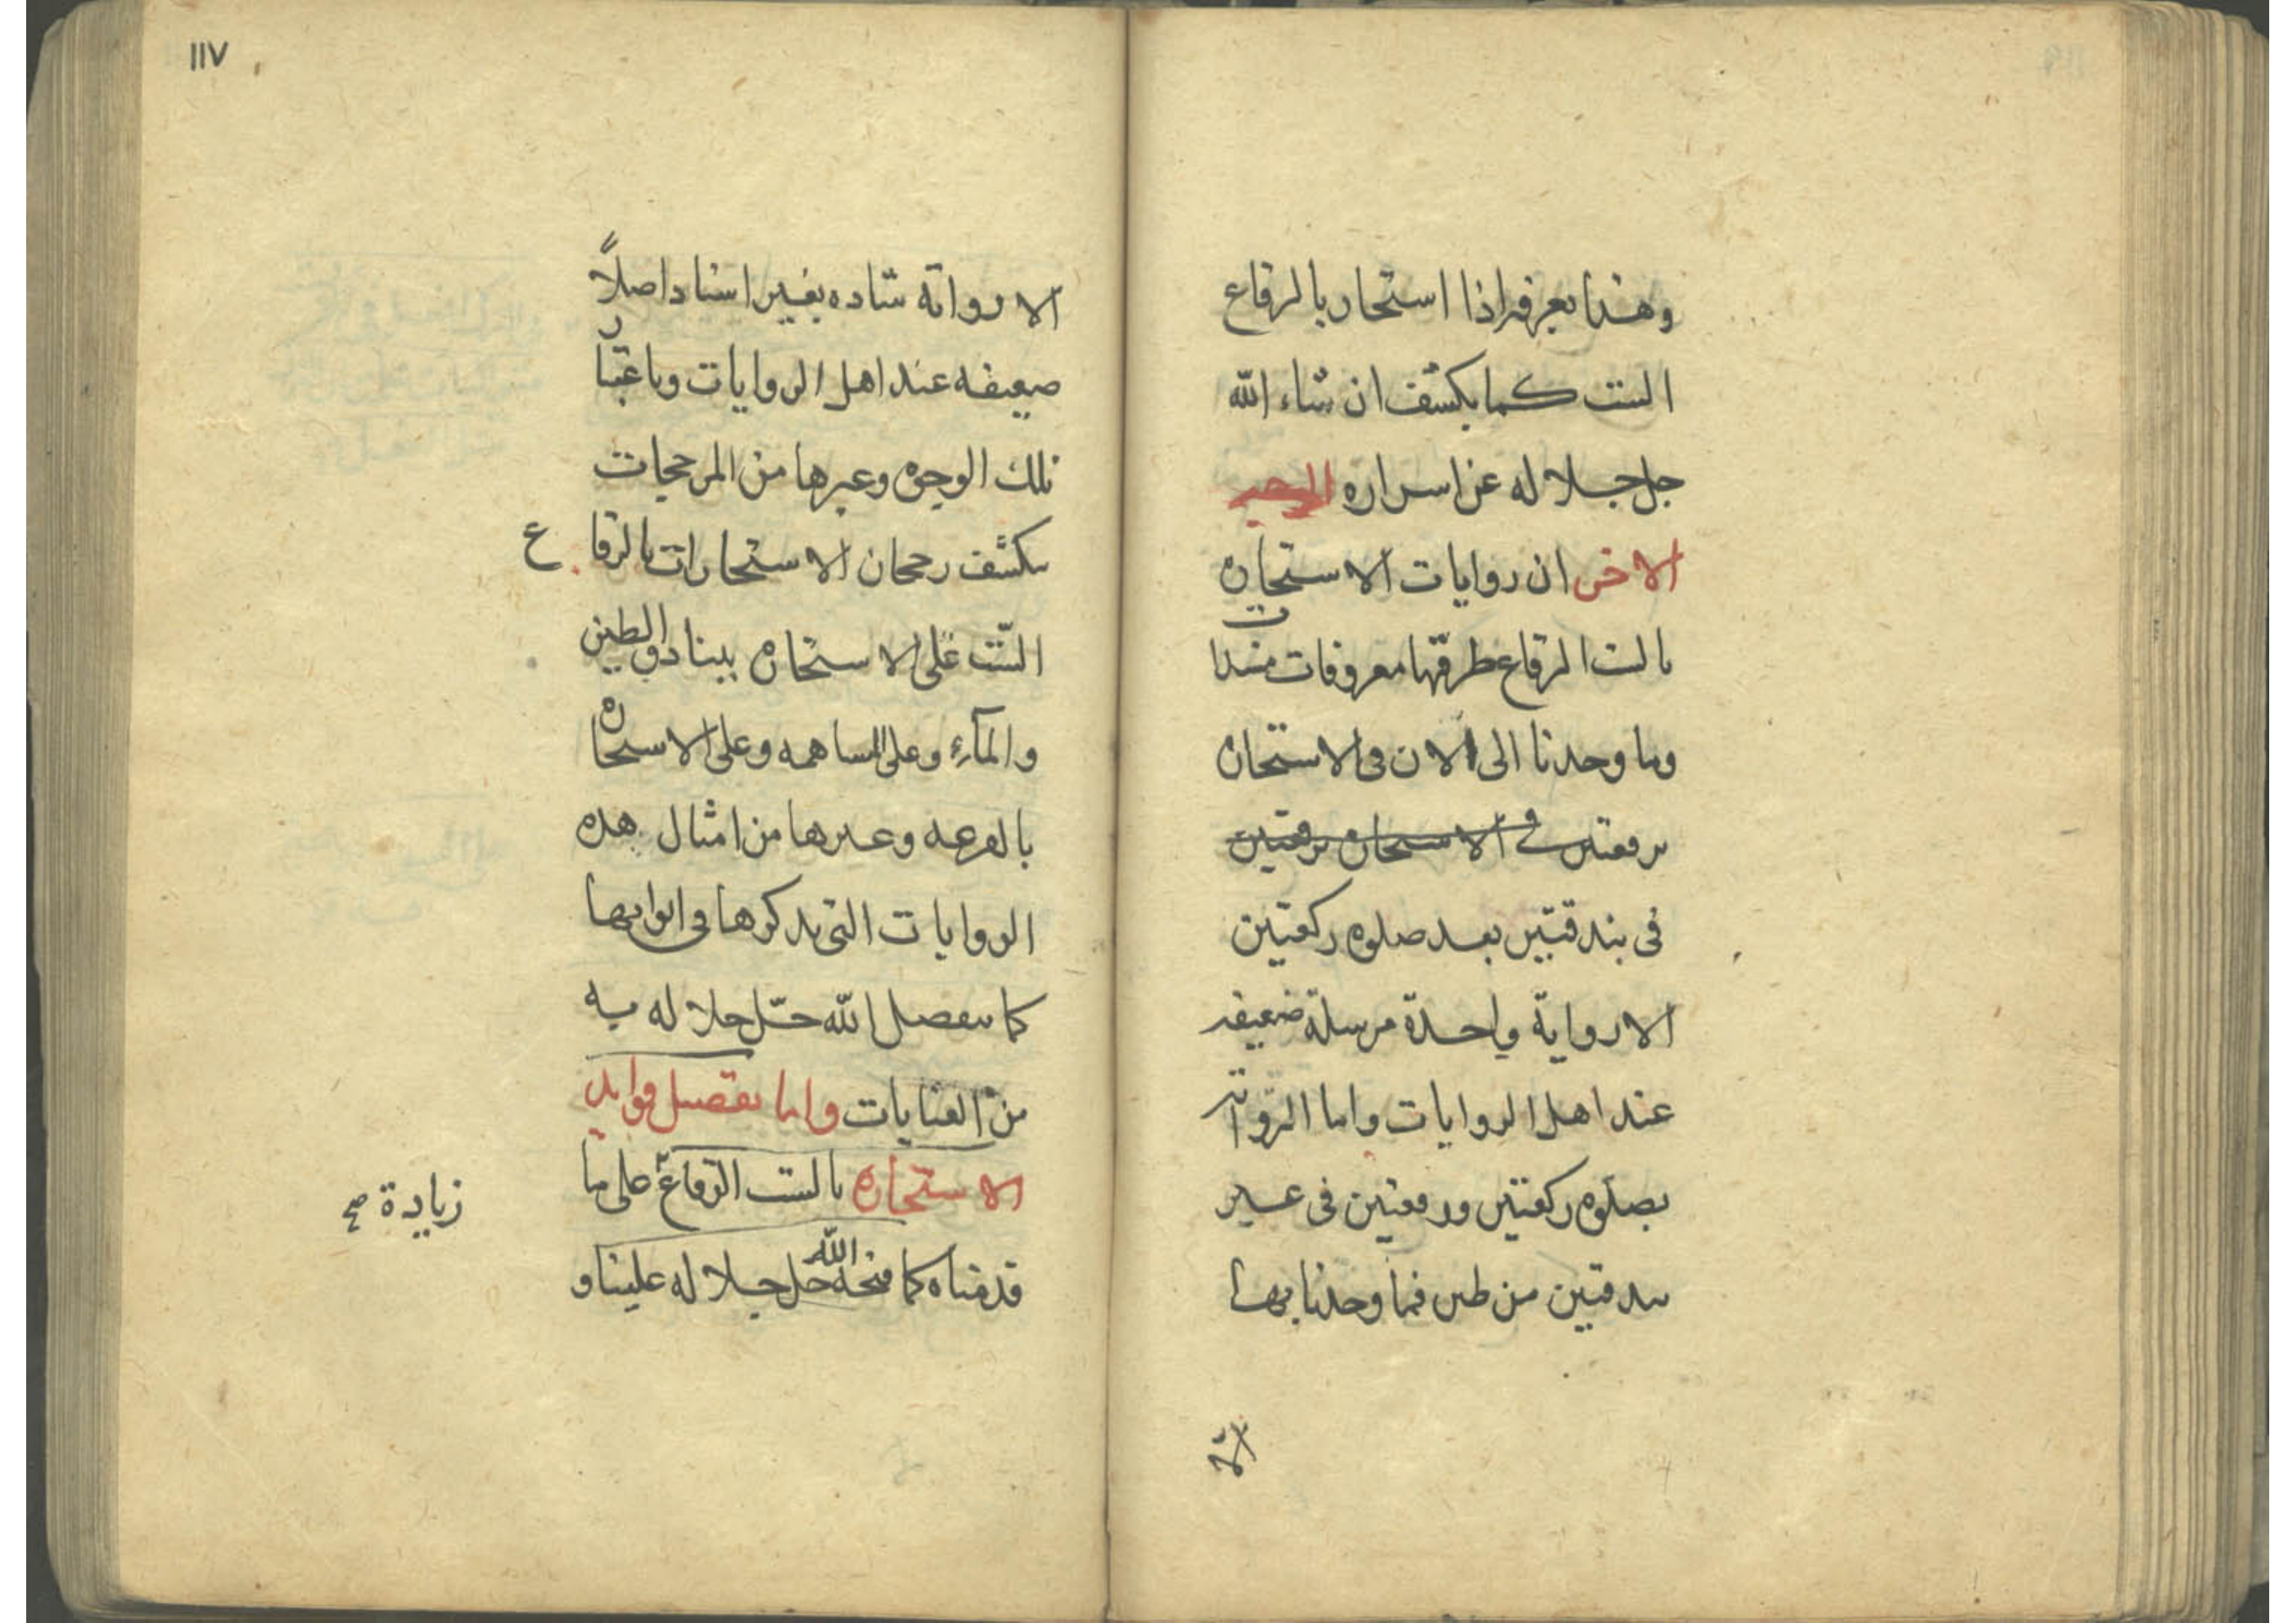 وهذا يعرفه اذا استخار بالرقاع
الست كما يكشف ان شاء الله
جل جلاله عن اسراره
الاخر ان روايات الاستخارة
بالست الرقاع طرقها معروفات مسندات
وما وجدنا الى الان في الاستخارة
برقعتين في الاستخارة برقعتين
في بندقتين بعد صلوة ركعتين
الا رواية واحدة مرسلة ضعيفة
عند اهل الروايات واما الرواية
بصلوة ركعتين ورقعتين في غير
بندقتين من طين فما وجدنا بها
الا
١١٧
الا رواية شاذه بغير اسناد اصلاً
ضعيفه عند اهل الروايات وباعتبار
تلك الوجوه وغيرها من المرجحات
يكشف رجحان الاستخارات بالرقاع
الست على الاستخارة ببنادق الطين
والمآء وعلى المساهمه وعلى الاستخارة
بالقرعه وغيرها من امثال هذه
الروايات التي نذكرها في ابوابها
كما يتفضل الله جلّ جلاله به
من العنايات واما تفصيل فوايد
الاستخارة بالست الرقاع على ما
قدمناه كما فتحه الله جل جلاله علينا و
زيادة صح